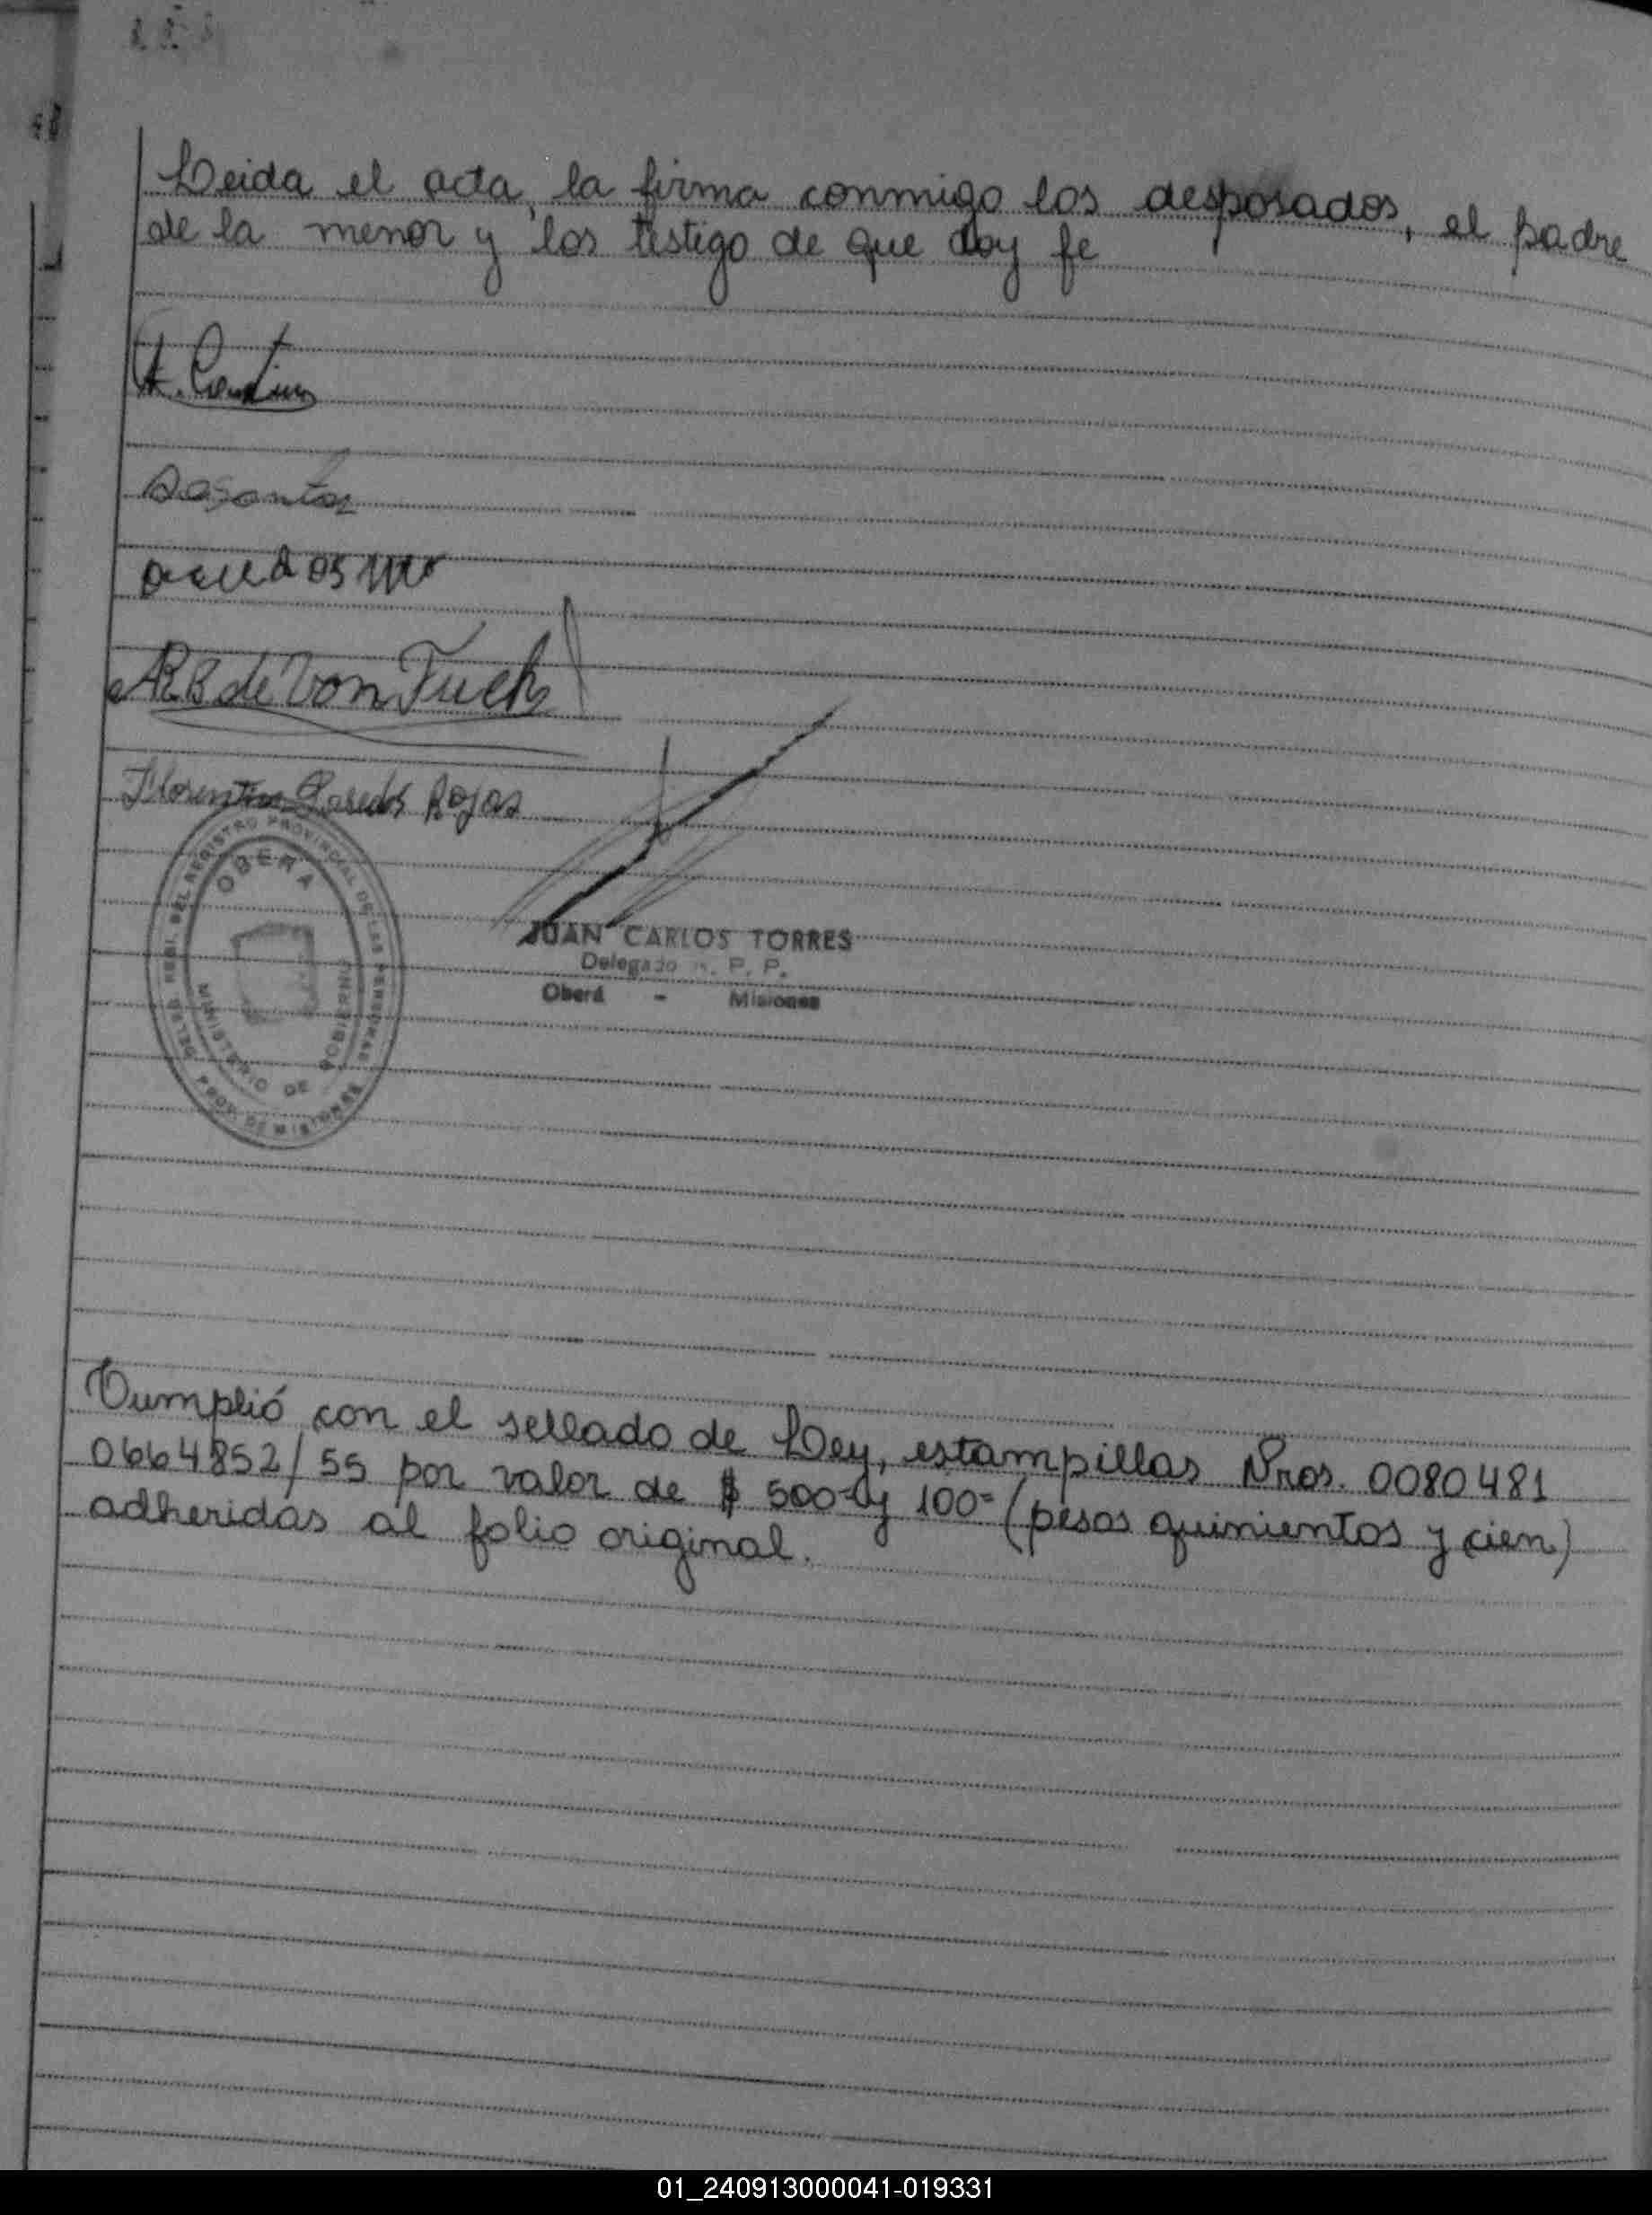 Leida el acta, la firma conmigo los desposados, el padre
de la menor y los testigo de que doy fe
Dosantos
ARB de Von Fuchs
Florentin Paredes Rojas
OBERA
MINISTERIO DE GOBIERNO
PROV. DE MISIONES
JUAN CARLOS TORRES
Delegado R. P. P.
Oberá - Misiones
Cumplió con el sellado de Ley, estampillas Nros. 0080481
0664852/55 por valor de $ 500= y 100= (pesos quinientos y cien)
adheridas al folio original.
01_240913000041-019331